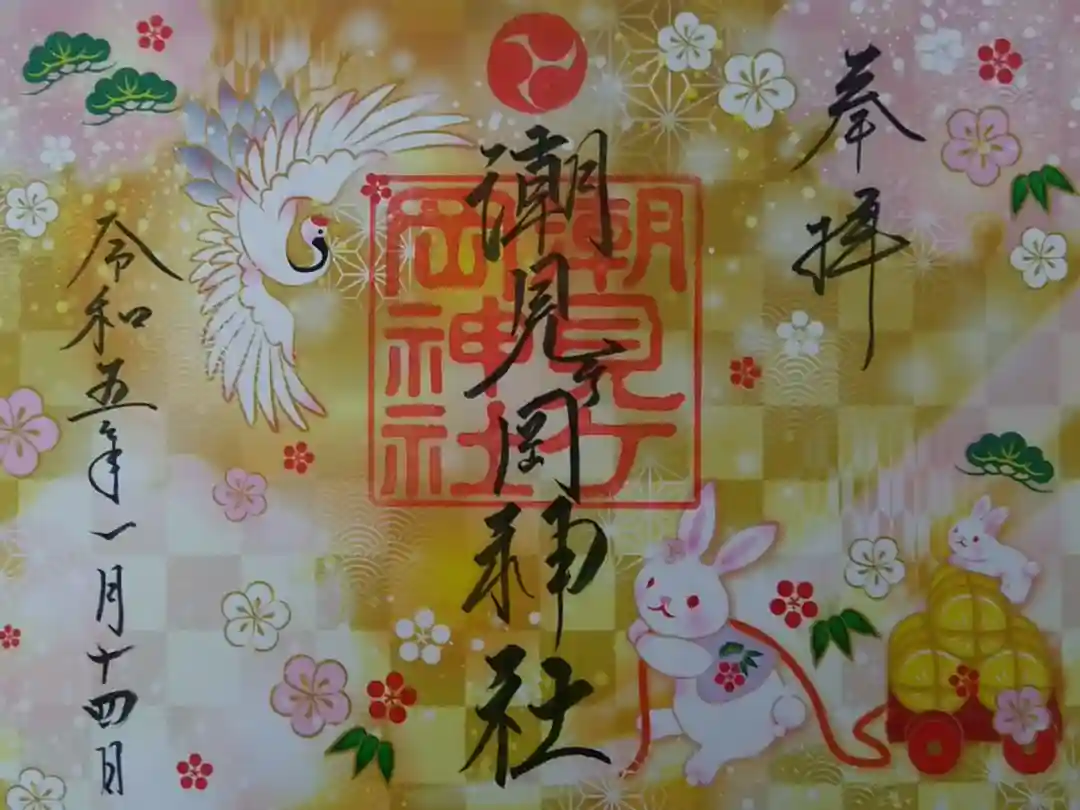 奉拝
潮見ヶ岡神社
潮見ケ
岡神社
令和五年一月十四日